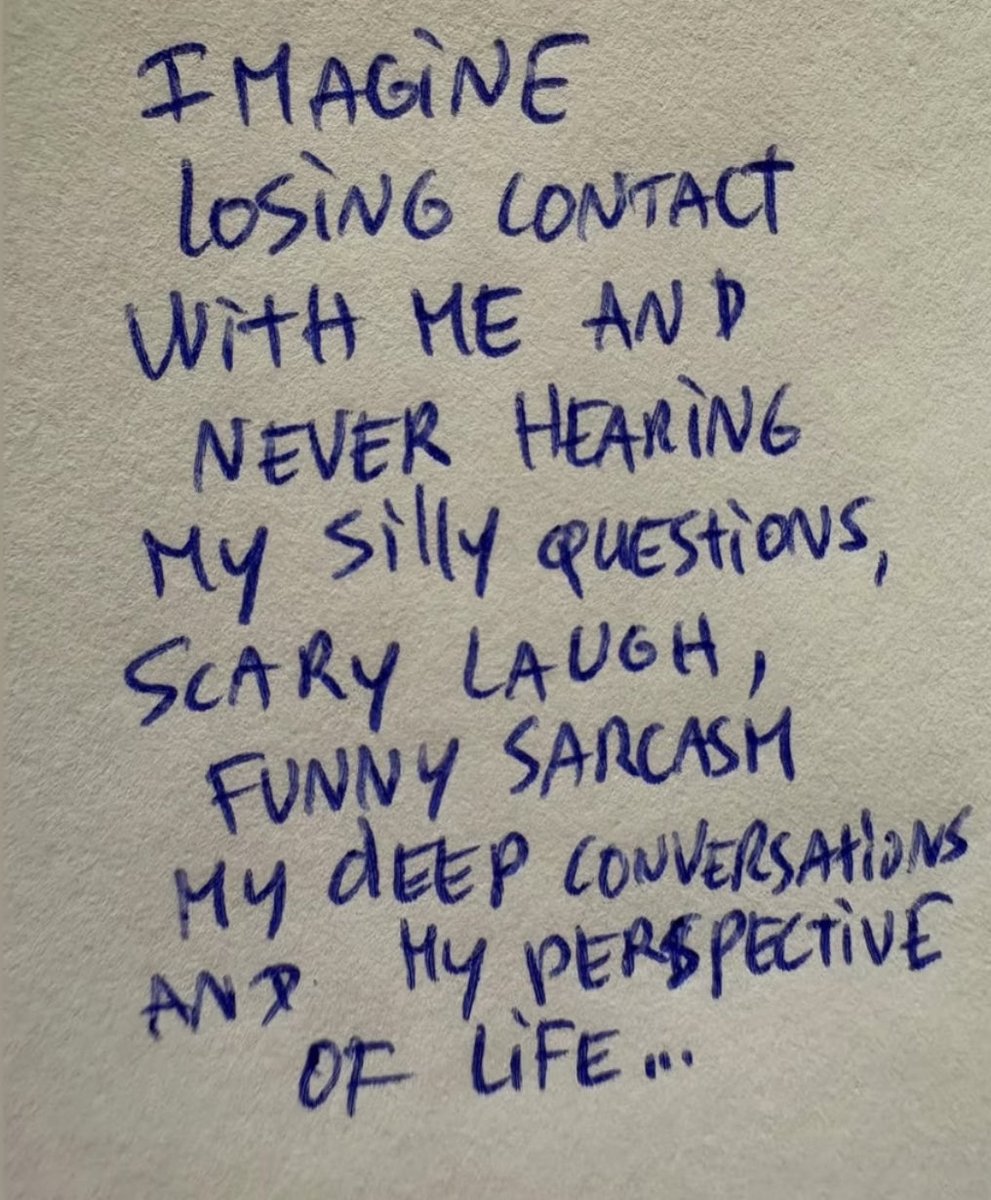 IMAGINE
LOSING CONTACT
WITH ME AND
NEVER HEARING
MY SILLY QUESTIONS,
SCARY LAUGH,
FUNNY SARCASM
MY DEEP CONVERSATIONS
AND MY PERSPECTIVE
OF LIFE...